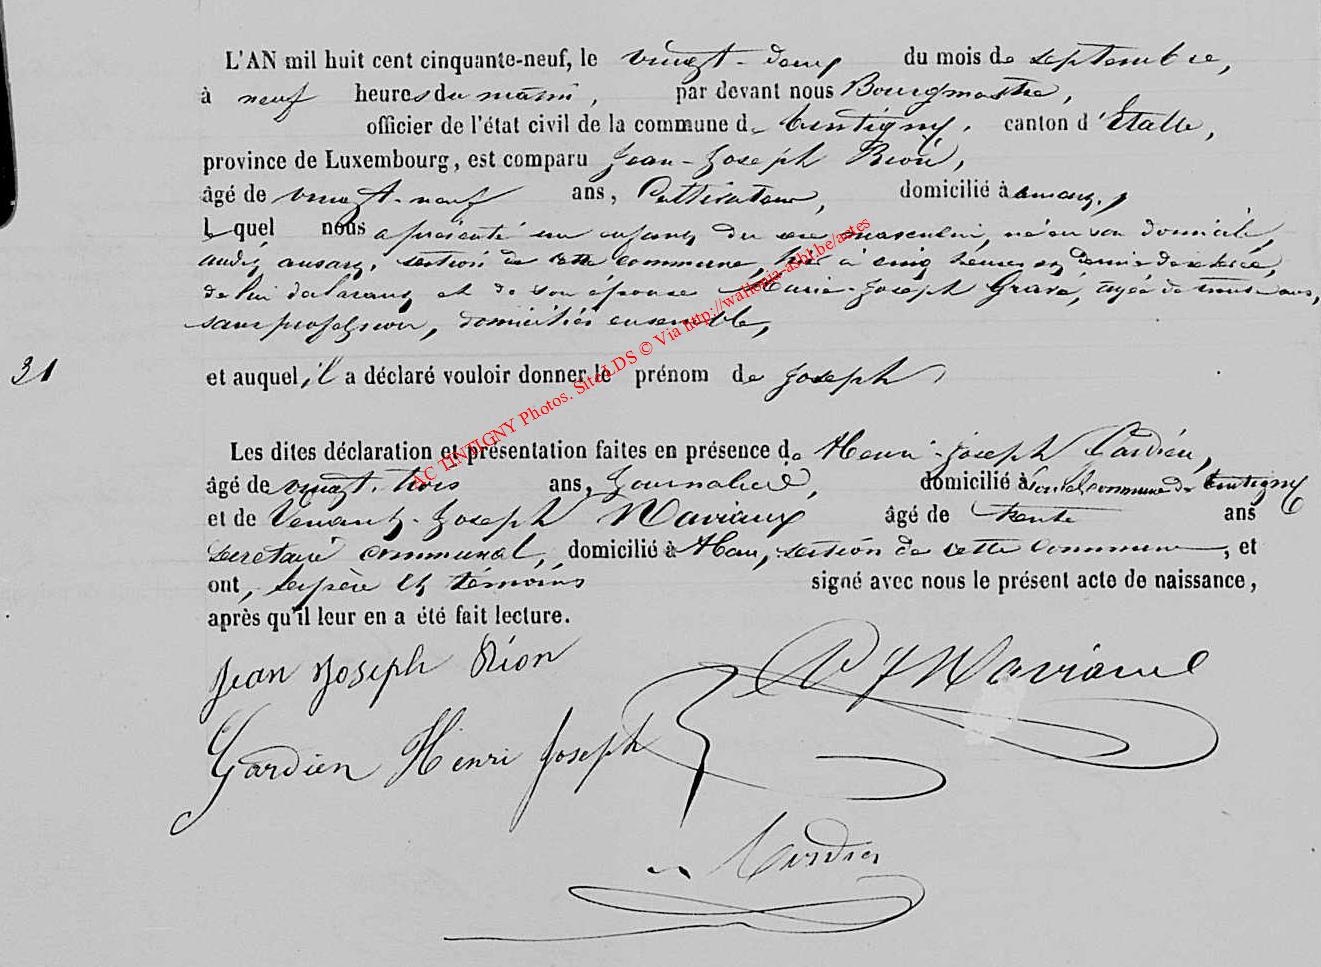 L'AN mil huit cent cinquante-neuf, le vingt-deux du mois de septembre,
à neuf heures du matin, par devant nous Bourgmestre,
officier de l'état civil de la commune de Tintigny, canton d'Etalle,
province de Luxembourg, est comparu Jean-Joseph Rion,
âgé de vingt-neuf ans, Cultivateur, domicilié à ansart,
lequel nous a présenté un enfant du sexe masculin, né en son domicile,
audit ansart, section de cette commune, hier à cinq heures et demie du
de lui déclarant et de son épouse Marie-Joseph Gravé, agée de trente ans,
sans profession, domiciliés ensemble,
31 et auquel, il a déclaré vouloir donner le prénom de Joseph
Les dites déclaration et présentation faites en présence de Henri-Joseph Gardien,
âgé de vingt-trois ans, Journalier, domicilié à commune de Tintigny
et de Venant-Joseph Maviaux âgé de trente ans
secrétaire communal, domicilié à Han, section de cette commune, et
ont, les père et témoins signé avec nous le présent acte de naissance,
après qu'il leur en a été fait lecture.
Jean Joseph Rion
V J Maviaux
Gardien Henri Joseph
AC TINTIGNY Photos. Site LDS © Via http://wallonia-asbl.be/actes